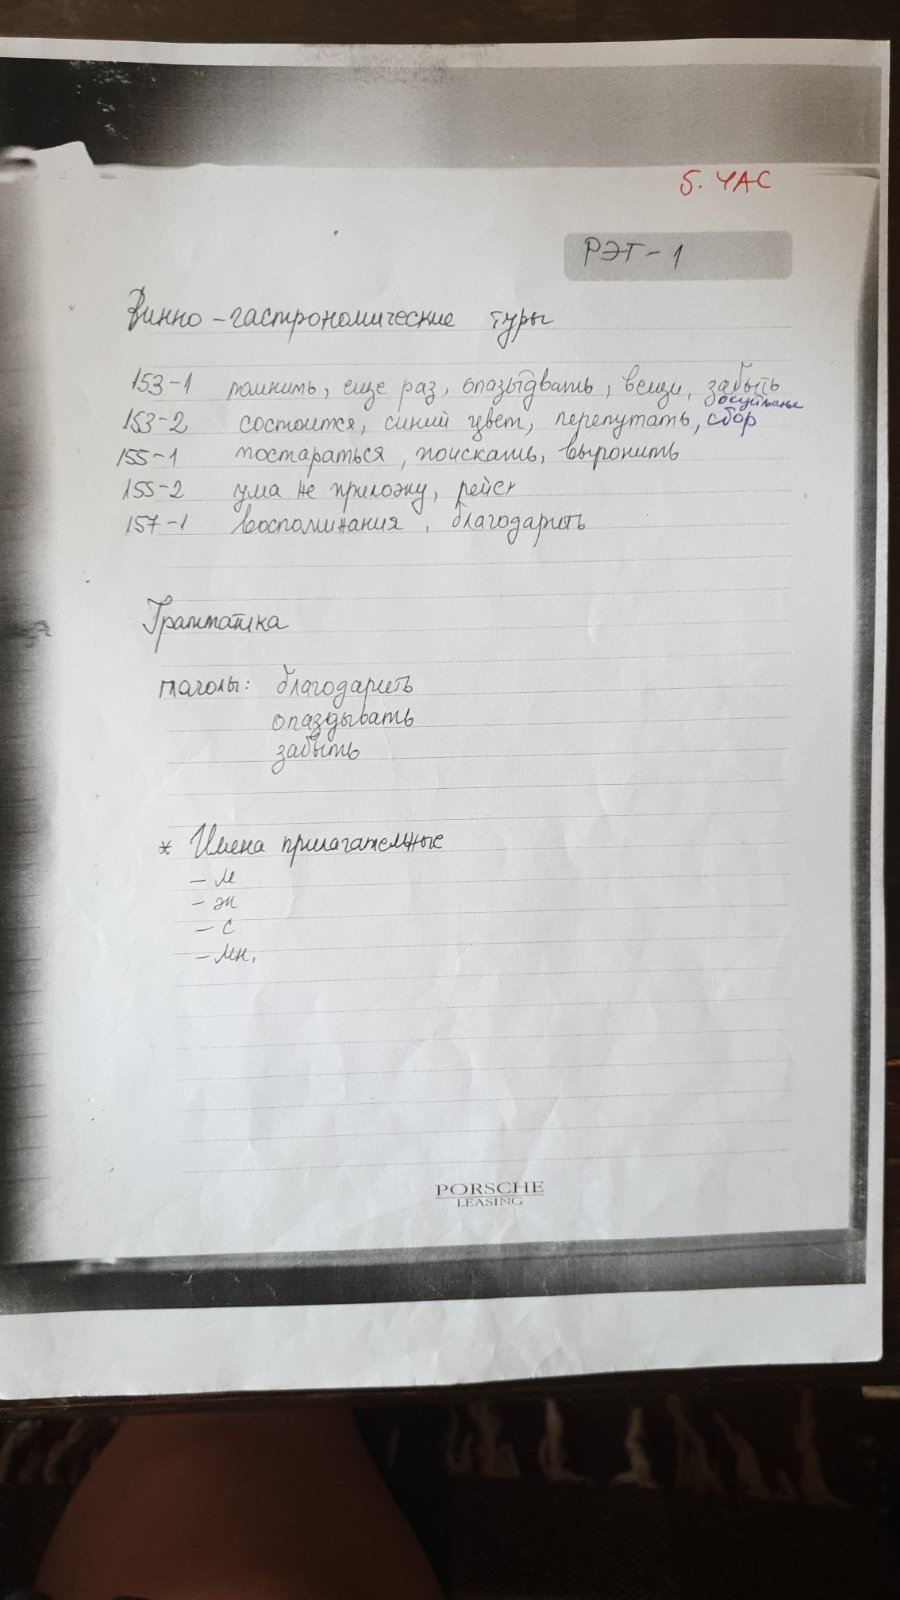 5. ЧАС
РЭТ-1
Винно-гастрономические туры
153-1 помнить, еще раз, опазыдвать, вещи, забыть
153-2 состоится, синий цвет, перепутать, сбор
155-1 постараться, поискать, выронить
155-2 ума не приложу, рейс
157-1 воспоминания, благодарить
Грамматика
глаголы: благодарить
опаздывать
забыть
* Имена прилагательные
- м
- ж
- с
- мн.
PORSCHE
LEASING